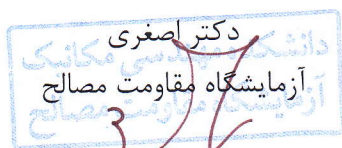 دکتر اصغری
آزمایشگاه مقاومت مصالح
دانشکده مهندسی مکانیک
آزمایشگاه مقاومت مصالح